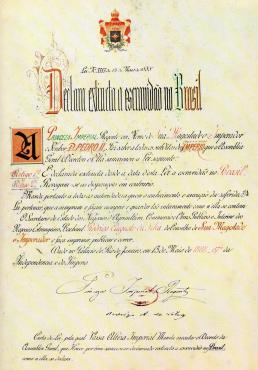 Lei N. 3353 de 13 de Maio de 1888.
Declara extincta a escravidão no Brasil
A PRINCEZA IMPERIAL Regente em Nome de Sua Magestade o Imperador
o Senhor D. PEDRO II, Faz saber a todos os subditos do IMPERIO que a Assembléa
Geral Decretou e Ella sanccionou a Lei seguinte:
Artigo 1º É declarada extincta desde a data desta Lei a escravidão no Brasil.
Artigo 2º Revogam-se as disposições em contrario.
Manda portanto a todas as autoridades a quem o conhecimento e execução da referida
Lei pertencer, que a cumpram e façam cumprir e guardar tão inteiramente como nella se contem.
O Secretario de Estado dos Negocios d'Agricultura, Commercio e Obras Publicas e Interino dos
Negocios Estrangeiros, Bacharel Rodrigo Augusto da Silva do Conselho de Sua Magestade
o Imperador, o faça imprimir, publicar e correr.
Dado no Palacio do Rio de Janeiro, em 13 de Maio de 1888, 67º da
Independencia e do Imperio.
Princeza Imperial Regente
Rodrigo A. da Silva
Carta de Lei, pela qual Vossa Alteza Imperial Manda executar o Decreto da
Assembléa Geral, que Houve por bem sanccionar declarando extincta a escravidão no Brasil,
como nella se declara.